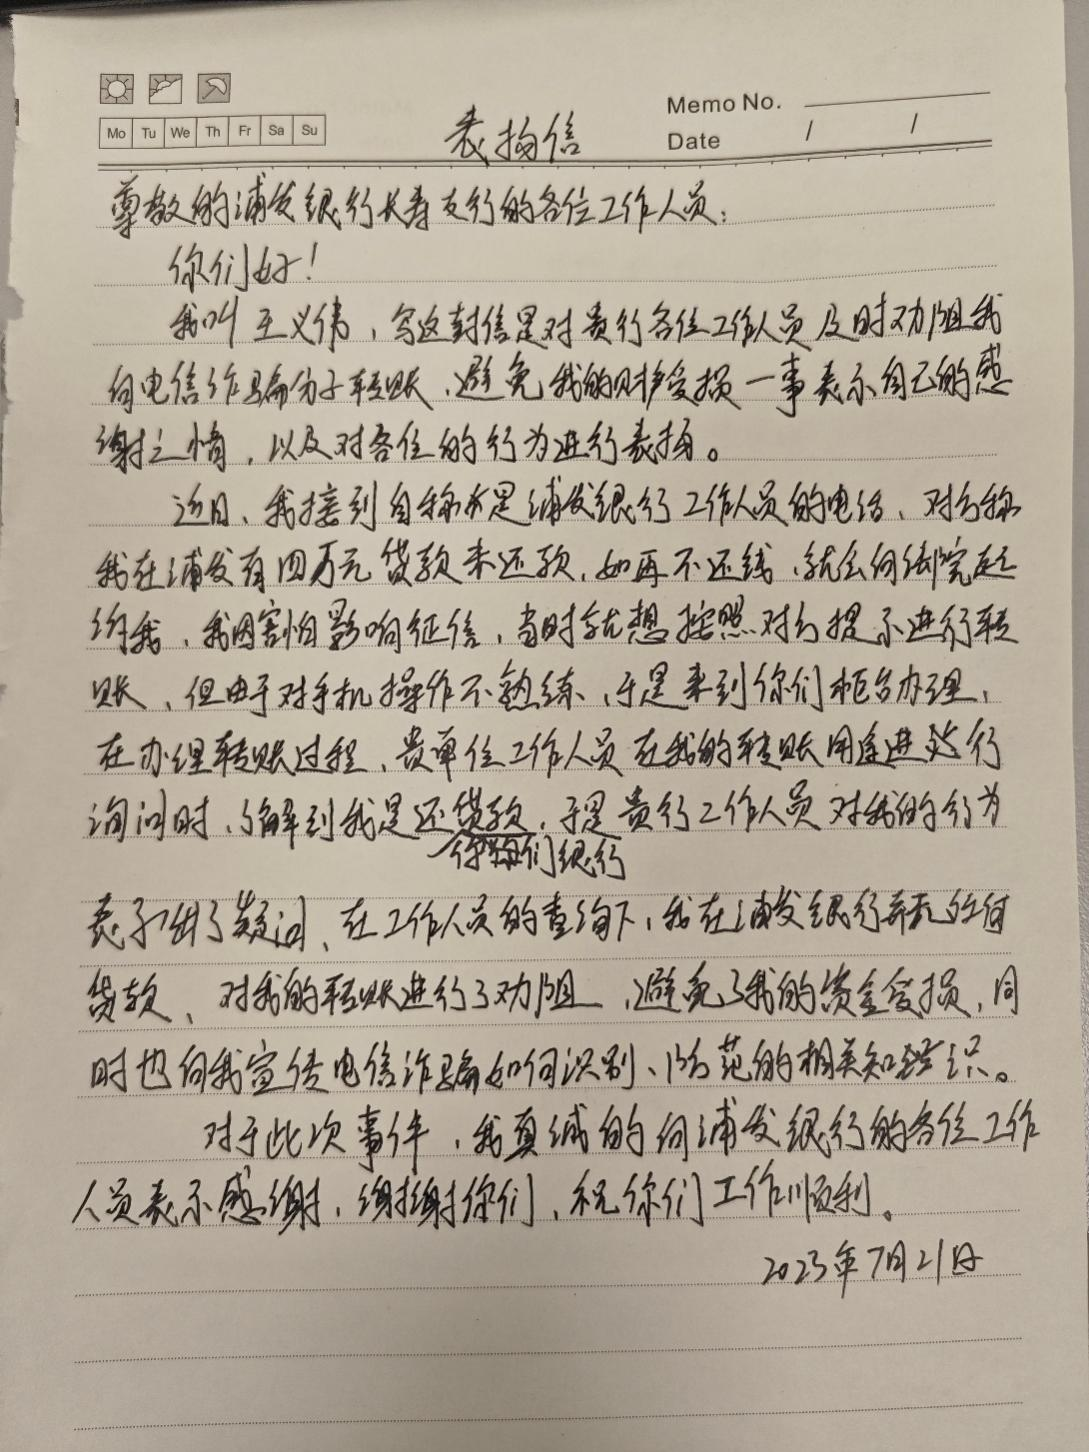 Memo No.
Mo Tu We Th Fr Sa Su
Date / /
表扬信
尊敬的浦发银行长寿支行的各位工作人员：
你们好！
我叫王义伟，写这封信是对贵行各位工作人员及时劝阻我
向电信诈骗分子转账，避免我的财产受损一事表示自己的感
谢之情，以及对各位的行为进行表扬。
近日，我接到自称是浦发银行工作人员的电话，对方称
我在浦发有四万元贷款未还款，如再不还钱，就会向法院起
诉我，我因害怕影响征信，当时就想按照对方提示进行转
账，但由于对手机操作不熟练，于是来到你们柜台办理，
在办理转账过程，贵单位工作人员在我的转账用途进行
询问时，了解到我是还贷款，于是贵行工作人员对我的行为
你们银行
表示出了疑问，在工作人员的查询下，我在浦发银行并无任何
贷款，对我的转账进行了劝阻，避免了我的资金受损，同
时也向我宣传电信诈骗如何识别、防范的相关知识。
对于此次事件，我真诚的向浦发银行的各位工作
人员表示感谢，谢谢你们，祝你们工作顺利。
2023年7月21日